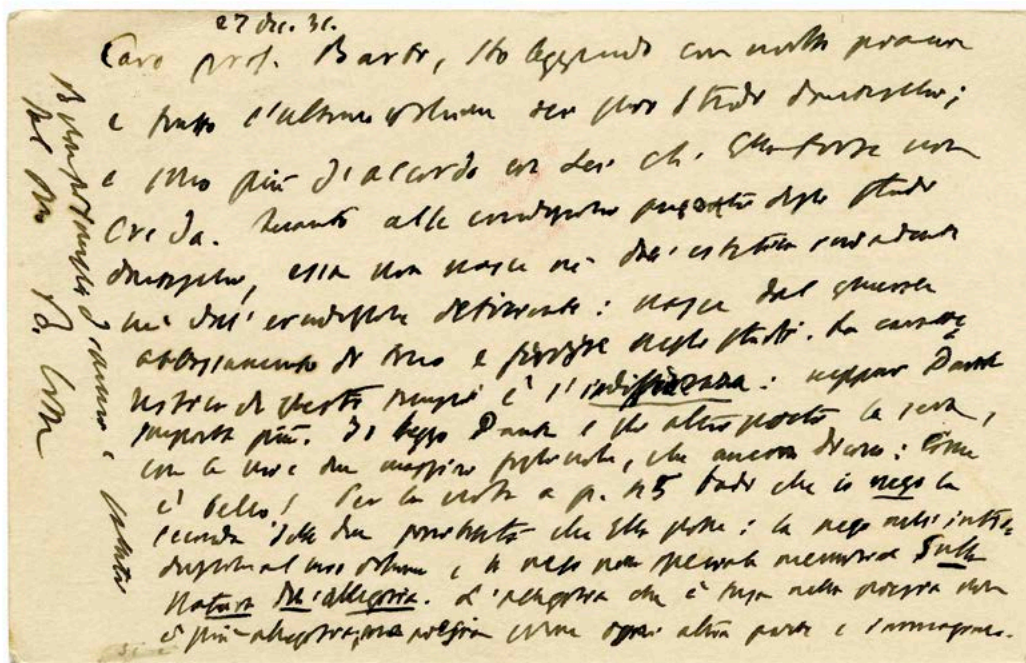 27 dic. 31.
Caro prof. Barbi, sto leggendo con molto piacere
e frutto l'ultimo volume dei suoi Studi danteschi;
e sono più d'accordo con Lei che Ella forse non
creda. Quanto alle condizioni presenti degli studi
danteschi, essa non nasce nè dall'estetica
nè dall'erudizione : nasce dal generale
abbassamento di tono e negli studi. La caratte-
ristica di questi tempi è l'indifferenza : neppur Dante
importa più. Io leggo Dante e gli altri poeti la sera,
con le mie due maggiori figliuole, che ancora dicono : Come
è bello! Per la nota a p. 25 badi che io nego la
seconda delle due possibilità che Ella pone : la nego nell'intro-
duzione al mio volume e la nego nella speciale memoria Sulla
natura dell'allegoria. L'allegoria che è fusa nella poesia non
è più allegoria, ma poesia come ogni altra parte e immagine.
Buon principio d'anno e saluti
dal suo B. Croce